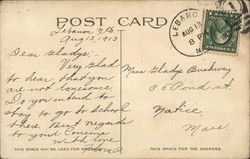 POST CARD
LEBANON
AUG 13
8 P
N.
Lebanon N.H.
Aug 13, 1913
Dear Gladys:-
Very Glad
to hear that you
are not lonesome.
Do you intend to
stay to go to school
there Best regards
to your Cousins
With love
Miss Gladys Bushway
35 Pond St.
Natick
Mass
THIS SPACE MAY BE USED FOR MESSAGE
THIS SPACE FOR THE ADDRESS